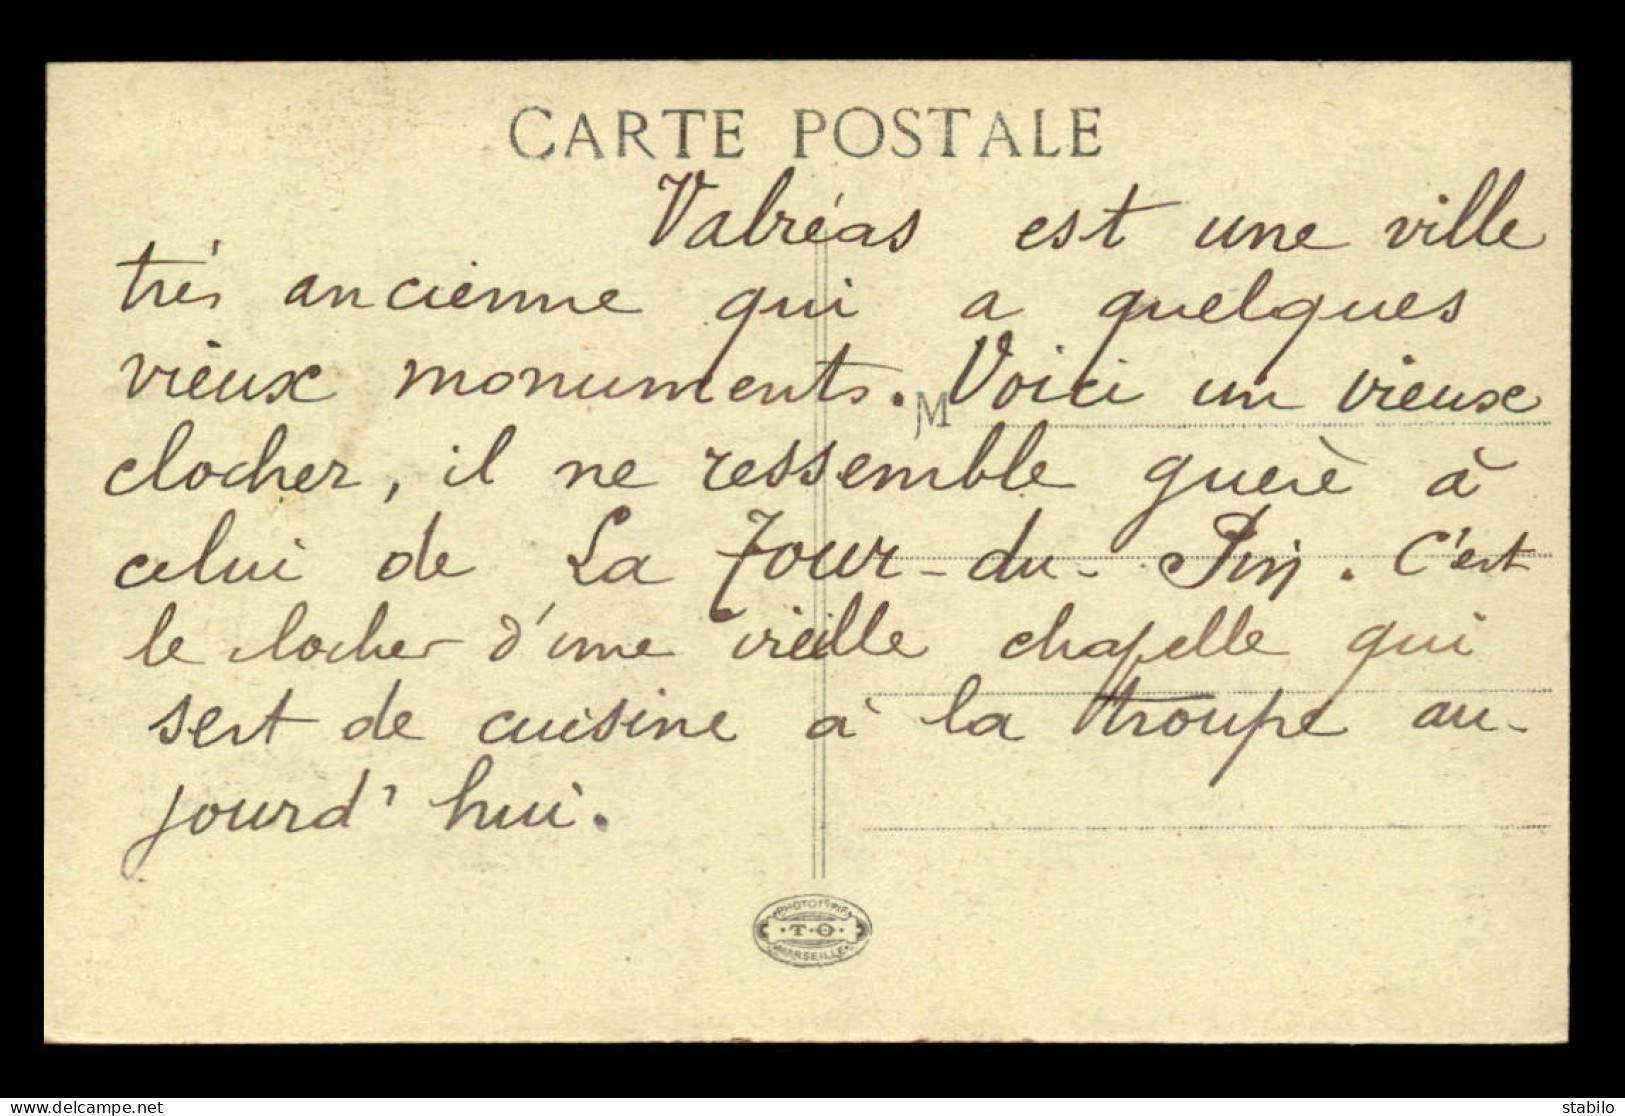 CARTE POSTALE
Valréas est une ville
très ancienne qui a quelques
vieux monuments. Voici un vieux
M
clocher, il ne ressemble guère à
celui de La Tour-du-Pin. C'est
le clocher d'une vieille chapelle qui
sert de cuisine à la troupe au-
jourd'hui.
PHOTOTYPIE
T·O
MARSEILLE
www.delcampe.net
stabilo